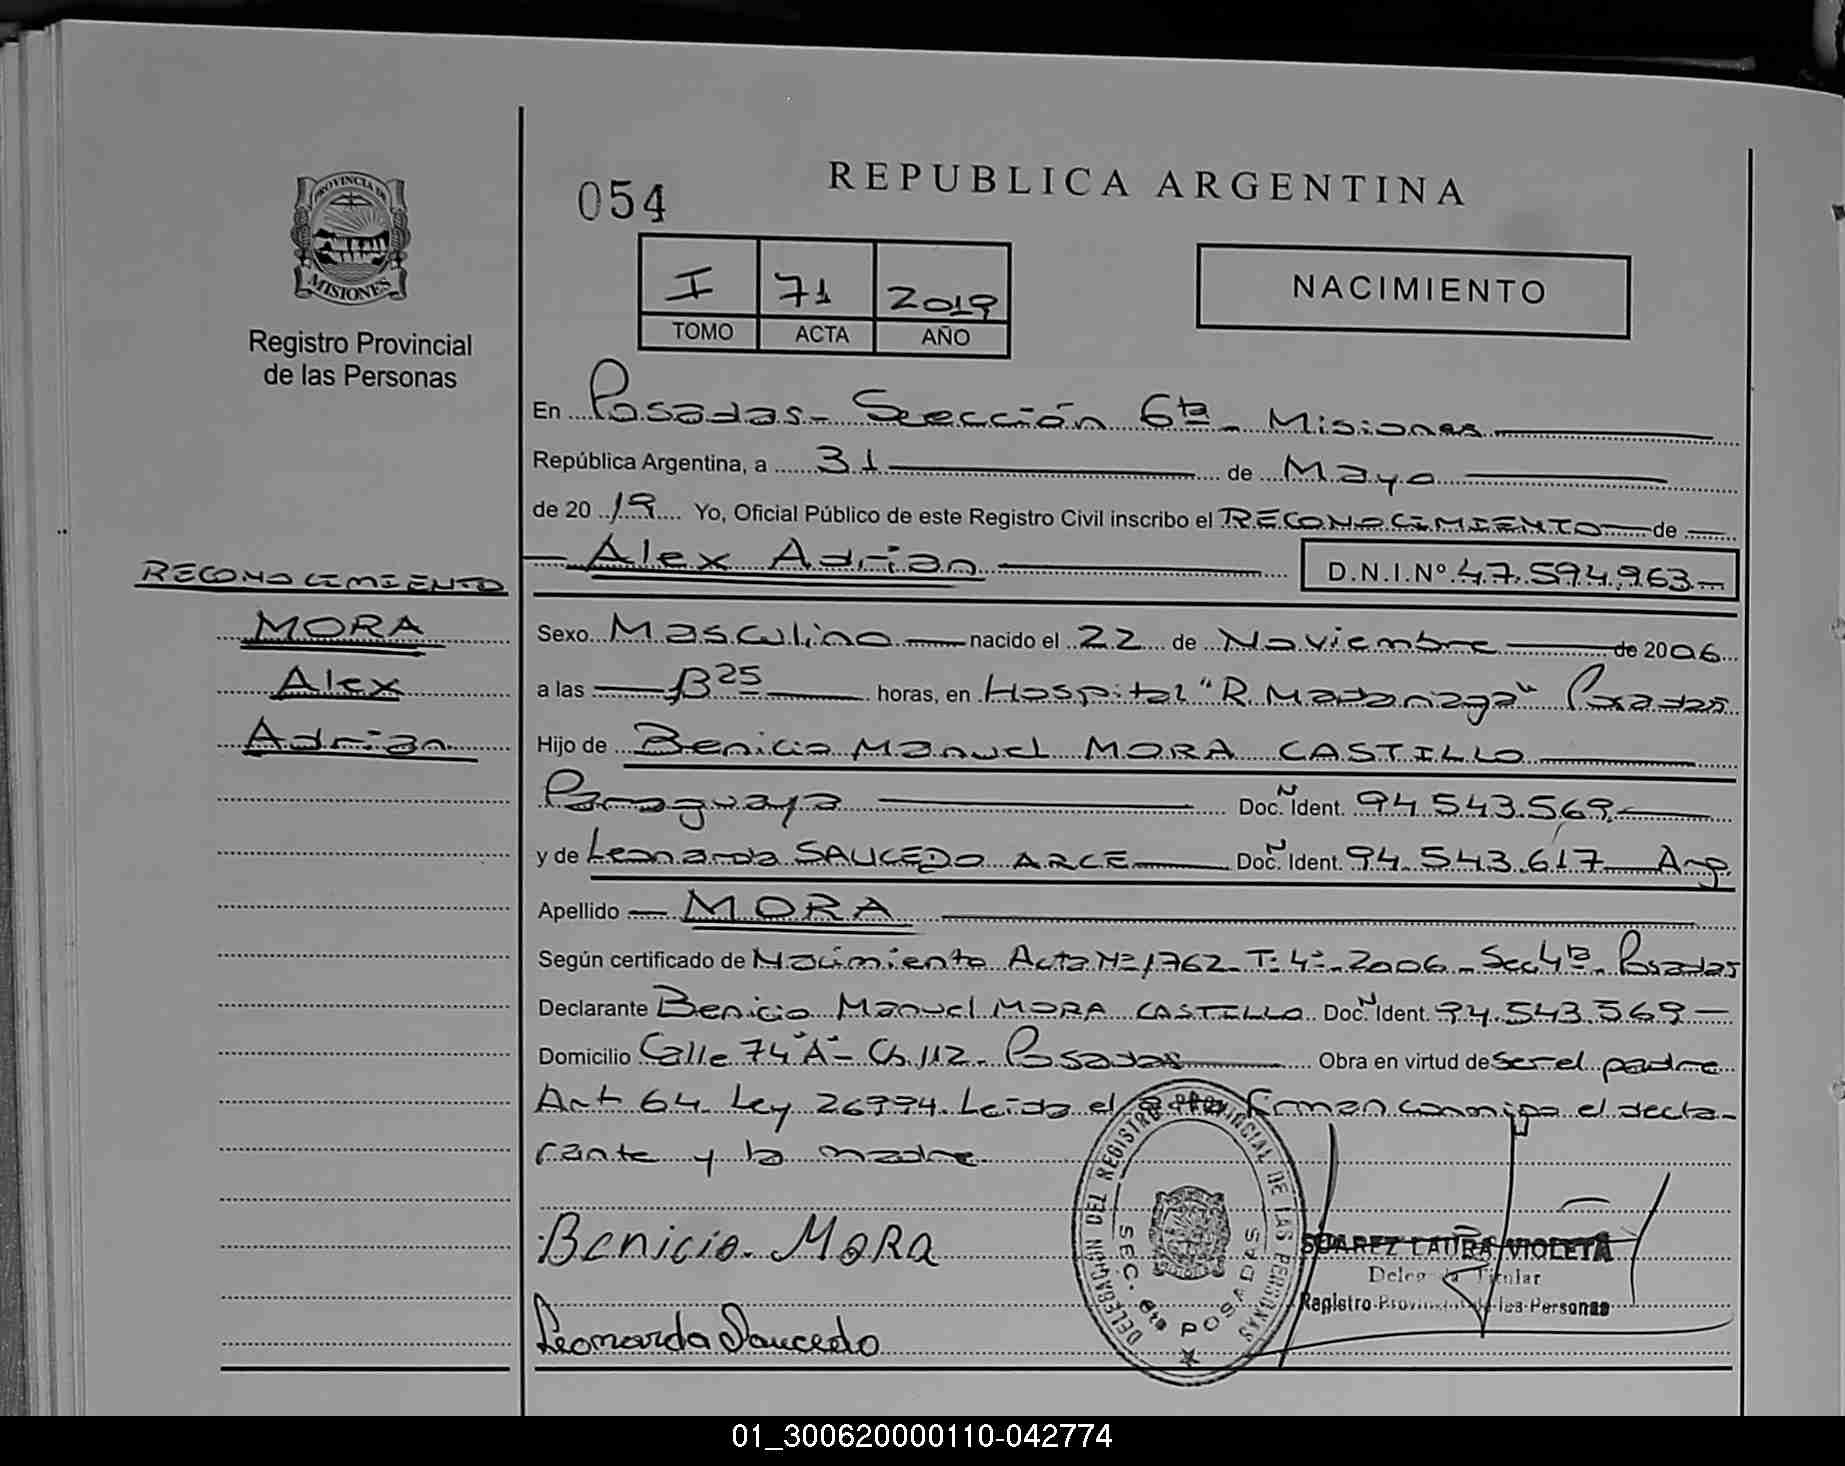 REPUBLICA ARGENTINA
054
PROVINCIA DE
MISIONES
Registro Provincial
de las Personas
I 71 2019
TOMO ACTA AÑO
NACIMIENTO
En Posadas - Sección 6ta - Misiones
República Argentina, a 31 de Mayo
de 2019 Yo, Oficial Público de este Registro Civil inscribo el RECONOCIMIENTO de
Alex Adrian D.N.I.Nº 47.594.963
RECONOCIMIENTO
MORA
Alex
Adrian
Sexo Masculino nacido el 22 de Noviembre de 2006
a las 13 25 horas, en Hospital "R. Madariaga" Posadas
Hijo de Benicio Manuel MORA CASTILLO
Paraguaya Doc. N Ident. 94.543.569
y de Leonarda SAUCEDO ARCE Doc. N Ident. 94.543.617 Arg
Apellido MORA
Según certificado de Nacimiento Acta Nº 1762 - T: 4º - 2006 - Sec 4ta - Posadas
Declarante Benicio Manuel MORA CASTILLO Doc. N Ident. 94.543.569
Domicilio Calle 74 "A" - Ch. 112 - Posadas Obra en virtud de ser el padre
Art 64 Ley 26994. Leida el acta firman conmigo el decla-
rante y la madre
Benicio MORA
Leonarda Saucedo
DELEGACION DEL REGISTRO PROVINCIAL DE LAS PERSONAS
SEC. 6ta POSADAS
SUAREZ LAURA VIOLETA
Delegada Titular
Registro Provincial de las Personas
01_300620000110-042774